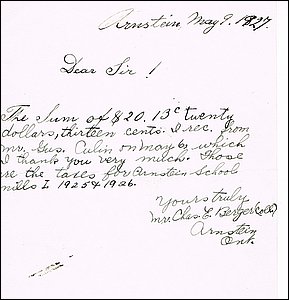 Arnstein, May 9. 1927.
Dear Sir!
The Sum of $20.13c twenty
dollars, thirteen cents. I rec. from
Mr. Gus. Culin on May 6, which
I thank you very much. Those
are the taxes for Arnstein School
mills I 1925 & 1926.
Yours truly
Mr. Chas E. Berger (coll)
Arnstein
Ont.